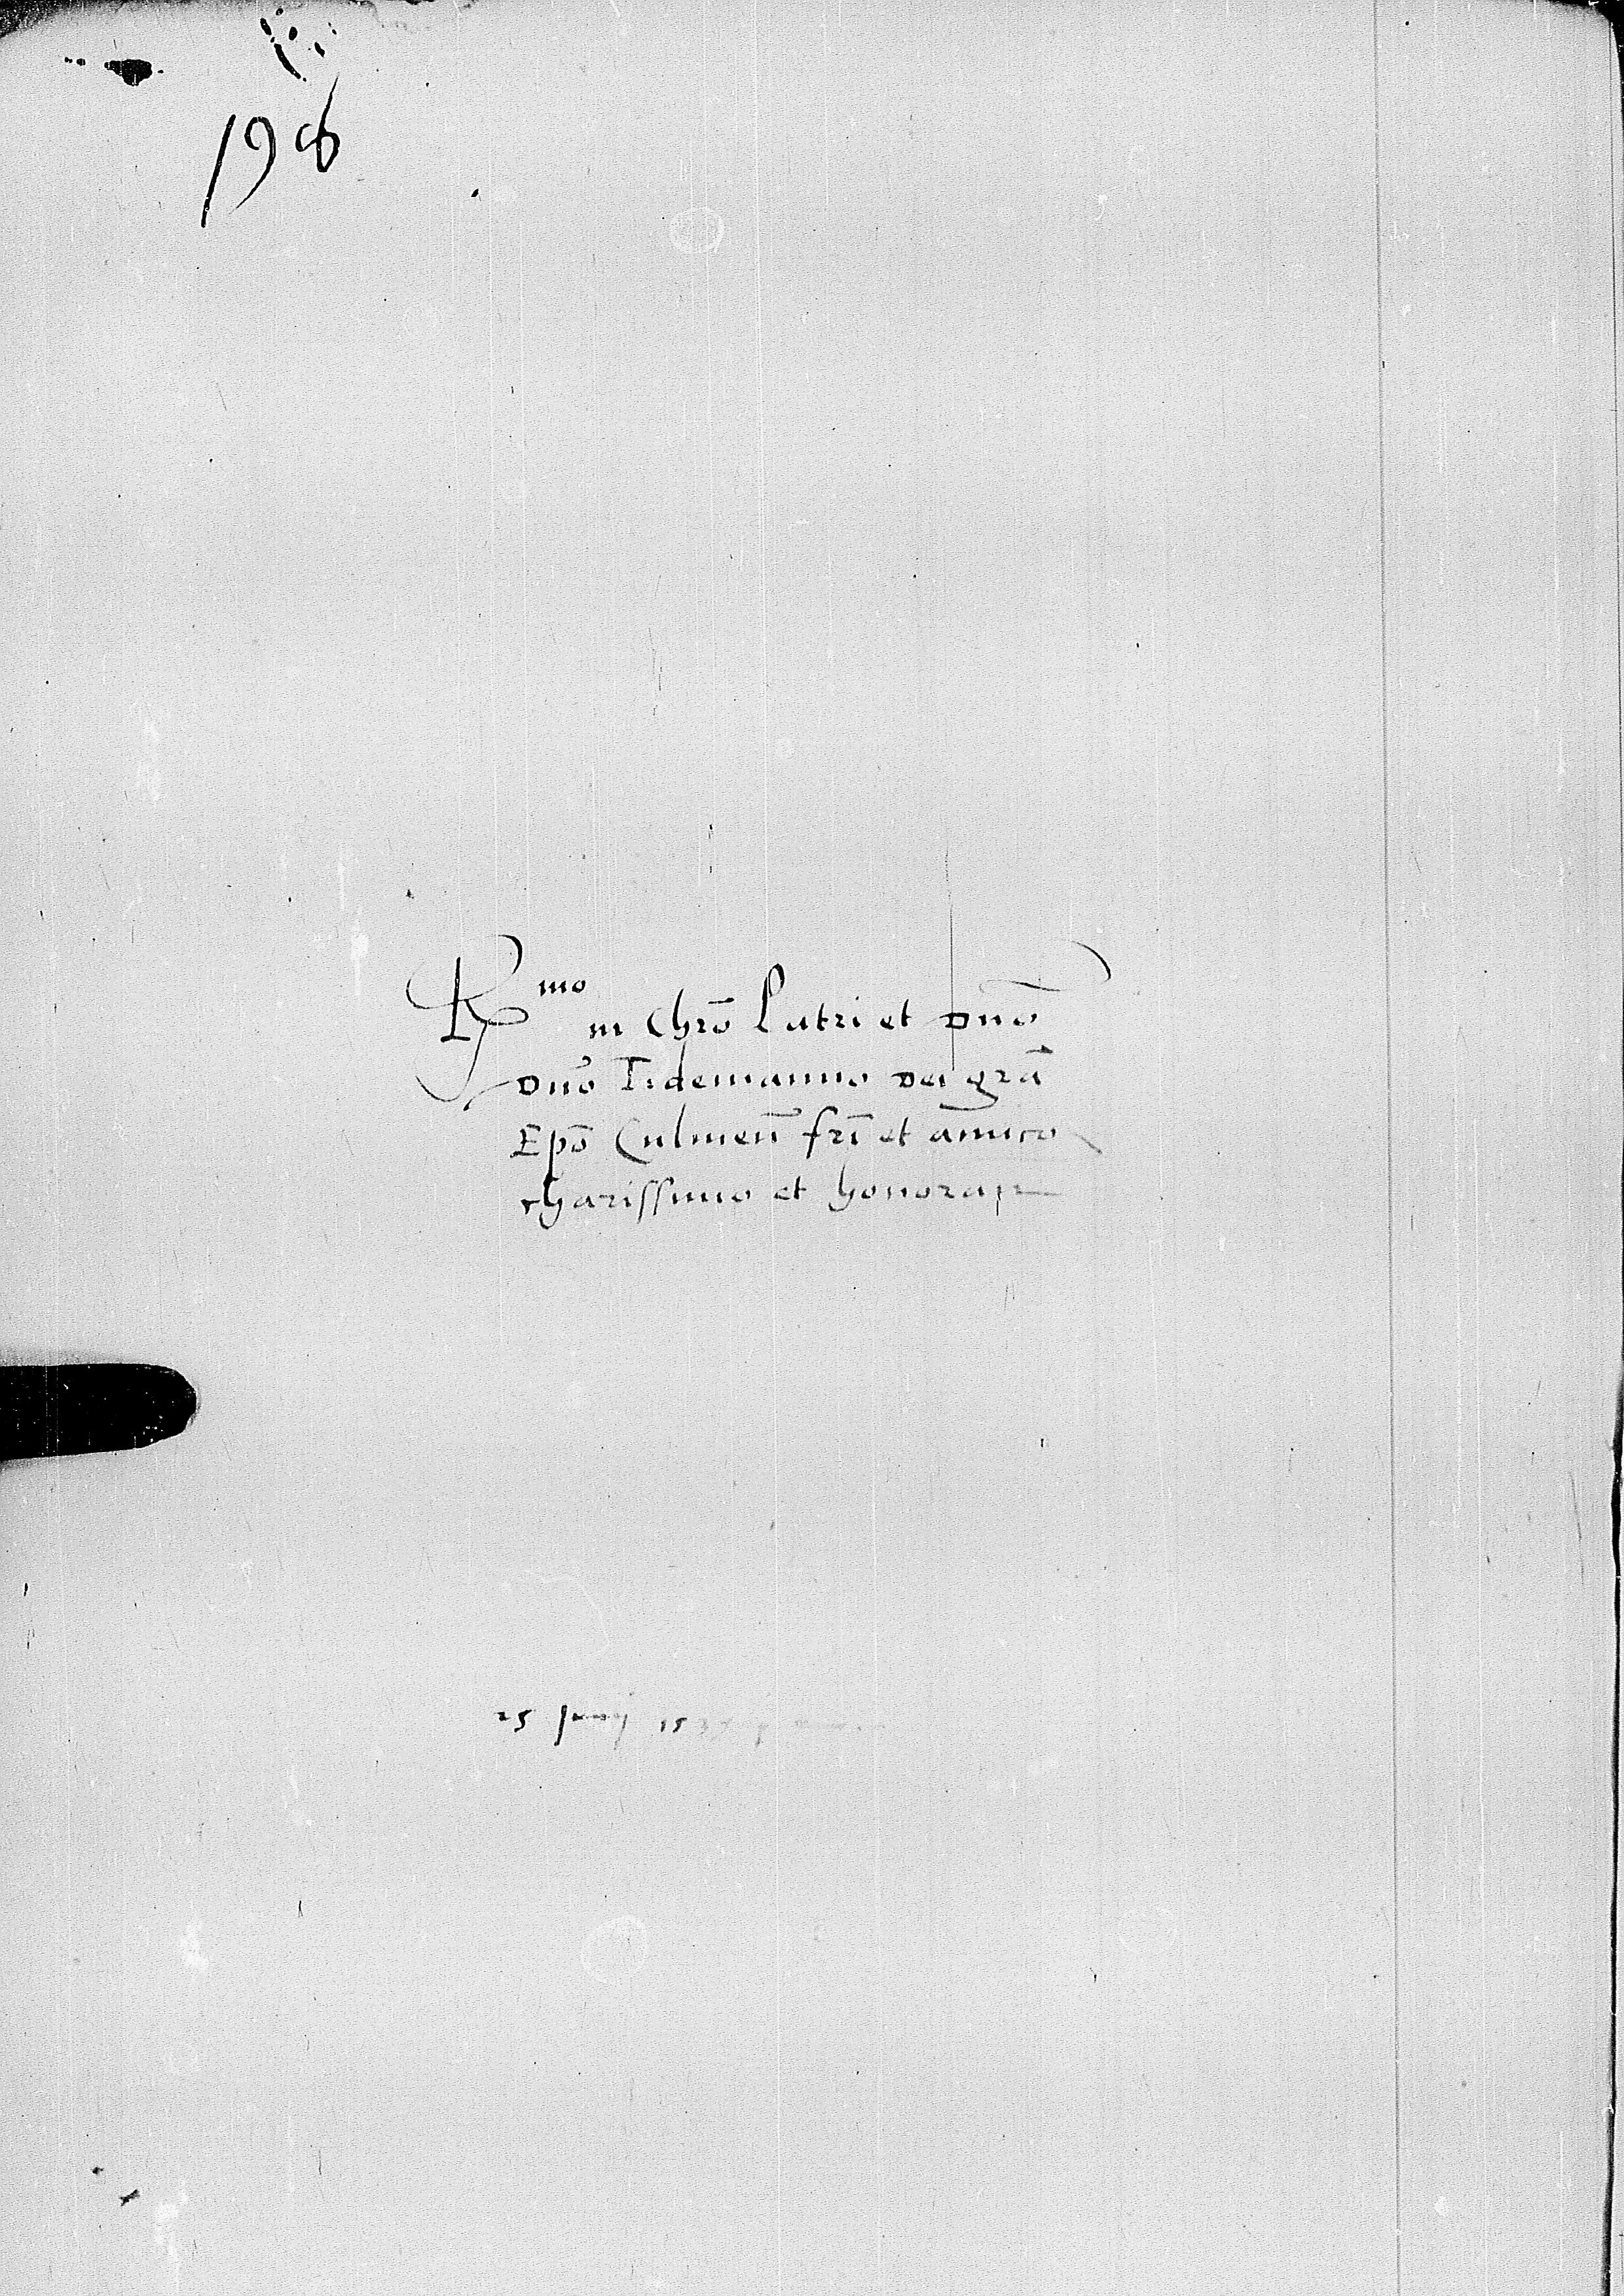 198
R^mo in Chrō Patri et Dnō
Dnō Tidemanno Dei grā
Epō Culmeñ frī et amico
charissimo et honoran
25 Junij 153